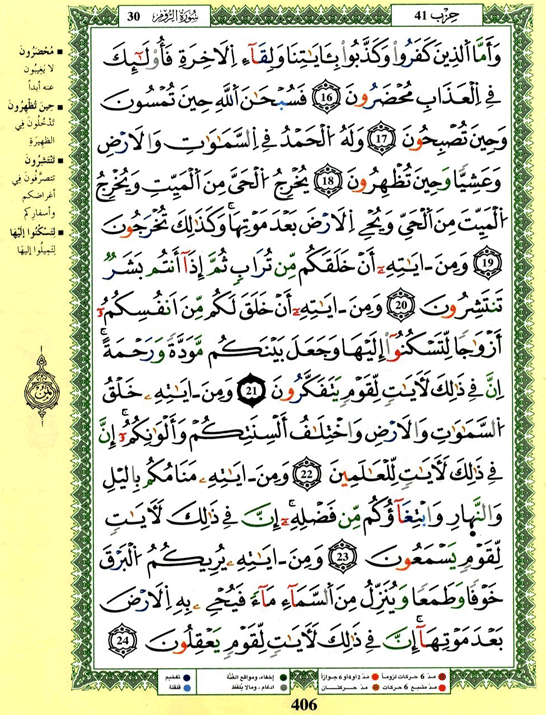 حِزْب 41
سُورَةُ الرُّومِ
30
وَأَمَّا اَ۬لذِينَ كَفَرُواْ وَكَذَّبُواْ بِـَٔايَٰتِنَا وَلِقَآءِ اِ۬لَاخِرَةِ فَأُوْلَٰٓئِكَ
فِے اِ۬لْعَذَابِ مُحْضَرُونَ 16 فَسُبْحَٰنَ اَ۬للَّهِ حِينَ تُمْسُونَ
وَحِينَ تُصْبِحُونَ 17 وَلَهُ اُ۬لْحَمْدُ فِے اِ۬لسَّمَٰوَٰتِ وَالَارْضِ
وَعَشِيّاٗ وَحِينَ تُظْهِرُونَ 18 يُخْرِجُ اُ۬لْحَيَّ مِنَ اَ۬لْمَيِّتِ وَيُخْرِجُ
اُ۬لْمَيِّتَ مِنَ اَ۬لْحَيِّ وَيُحْيِ اِ۬لَارْضَ بَعْدَ مَوْتِهَا وَكَذَٰلِكَ تُخْرَجُونَ
19 وَمِنَ ـ ايَٰتِهِۦٓ أَنْ خَلَقَكُم مِّن تُرَابٖ ثُمَّ إِذَآ أَنتُم بَشَرٞ
تَنتَشِرُونَ 20 وَمِنَ ـ ايَٰتِهِۦٓ أَنْ خَلَقَ لَكُم مِّنَ اَنفُسِكُمُۥٓ
أَزْوَٰجاٗ لِّتَسْكُنُوٓاْ إِلَيْهَا وَجَعَلَ بَيْنَكُم مَّوَدَّةٗ وَرَحْمَةًۖ
اِنَّ فِے ذَٰلِكَ لَأٓيَٰتٖ لِّقَوْمٖ يَتَفَكَّرُونَ 21 وَمِنَ ـ ايَٰتِهِۦ خَلْقُ
اُ۬لسَّمَٰوَٰتِ وَالَارْضِ وَاخْتِلَٰفُ أَلْسِنَتِكُمْ وَأَلْوَٰنِكُمُۥٓ إِنَّ
فِے ذَٰلِكَ لَأٓيَٰتٖ لِّلْعَٰلَمِينَ 22 وَمِنَ ـ ايَٰتِهِۦ مَنَامُكُم بِاليْلِ
وَالنَّهارِ وَابْتِغَآؤُكُم مِّن فَضْلِهِۦٓ إِنَّ فِے ذَٰلِكَ لَأٓيَٰتٖ
لِّقَوْمٖ يَسْمَعُونَ 23 وَمِنَ ـ ايَٰتِهِۦ يُرِيكُمُ اُ۬لْبَرْقَ
خَوْفاٗ وَطَمَعاٗ وَيُنَزِّلُ مِنَ اَ۬لسَّمَآءِ مَآءٗ فَيُحْيِۦ بِهِ اِ۬لَارْضَ
بَعْدَ مَوْتِهَآ إِنَّ فِے ذَٰلِكَ لَأٓيَٰتٖ لِّقَوْمٖ يَعْقِلُونَ 24
■ مُحْضَرُونَ
لا يَغِيبُون
عنه أبداً
■ حِينَ تُظْهِرُونَ
تَدْخُلُونَ فِي
الظهيرَةِ
■ تَنتَشِرُونَ
تتصرَّفُونَ فِي
أغراضكم
وأسفارِكم
■ لِتَسْكُنُوا إِلَيْهَا
لِتَمِيلُوا إليها
مدّ 6 حركات لزوماً
مدّ 2 أو 4 أو 6 جوازاً
إخفاء، ومواقع الغُنَّة
تفخيم
مدّ مشبع 6 حركات
مدّ حركتان
ادغام، وما لا يُلفَظ
قلقلة
406